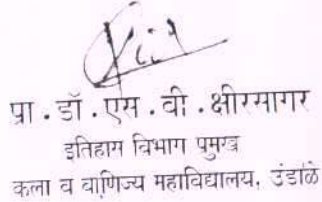 प्रा . डॉ . एस . वी . क्षीरसागर
इतिहास विभाग पुमख
कला व वाणिज्य महाविद्यालय, उंडाळे